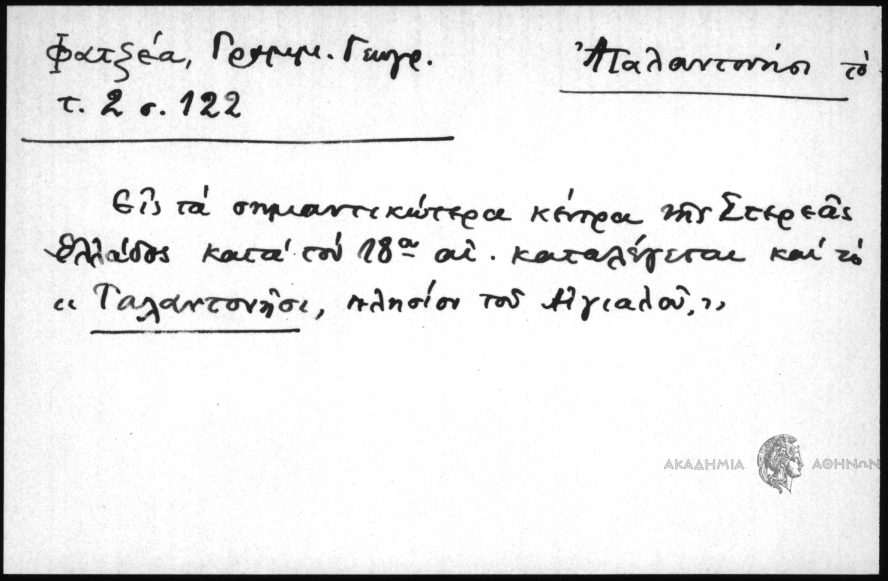 Φατζέα, Γραμμ. Γεωγρ.
τ. 2 σ. 122
Ἀταλαντονήσι τὸ
Εἰς τὰ σημαντικώτερα κέντρα τῆς Στερεᾶς
Ἑλλάδος κατὰ τὸν 18ον αἰ. καταλέγεται καὶ τὸ
«Ταλαντονῆσι, πλησίον τοῦ Αἰγιαλοῦ,»
ΑΚΑΔΗΜΙΑ ΑΘΗΝΩΝ